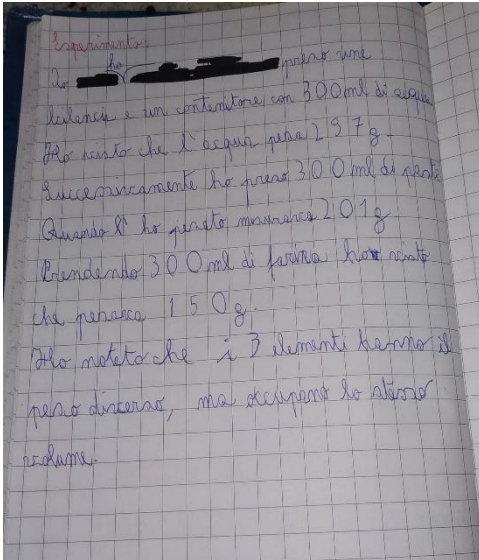 Esperimento:
Io ho preso una
bilancia e un contenitore con 300ml di acqua
Ho visto che l'acqua pesa 297g.
Successivamente ho preso 300 ml di pasta
Quando l'ho pesato misurava 201g.
Prendendo 300 ml di farina ho visto
che pesava 150g.
Ho notato che i 3 elementi hanno il
peso diverso, ma occupano lo stesso
volume.